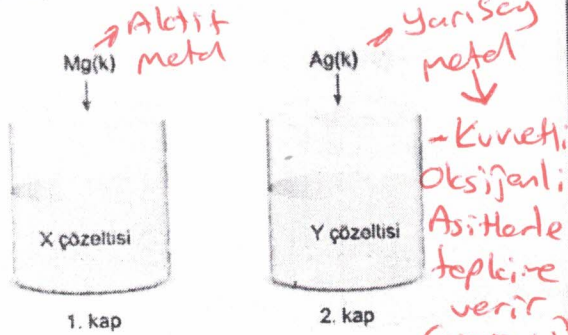 Aktif
metal
Mg(k)
X çözeltisi
1. kap
Yarısoy
metal
Ag(k)
Y çözeltisi
2. kap
- Kuvvetli
Oksijenli
Asitlerle
tepkime
verir